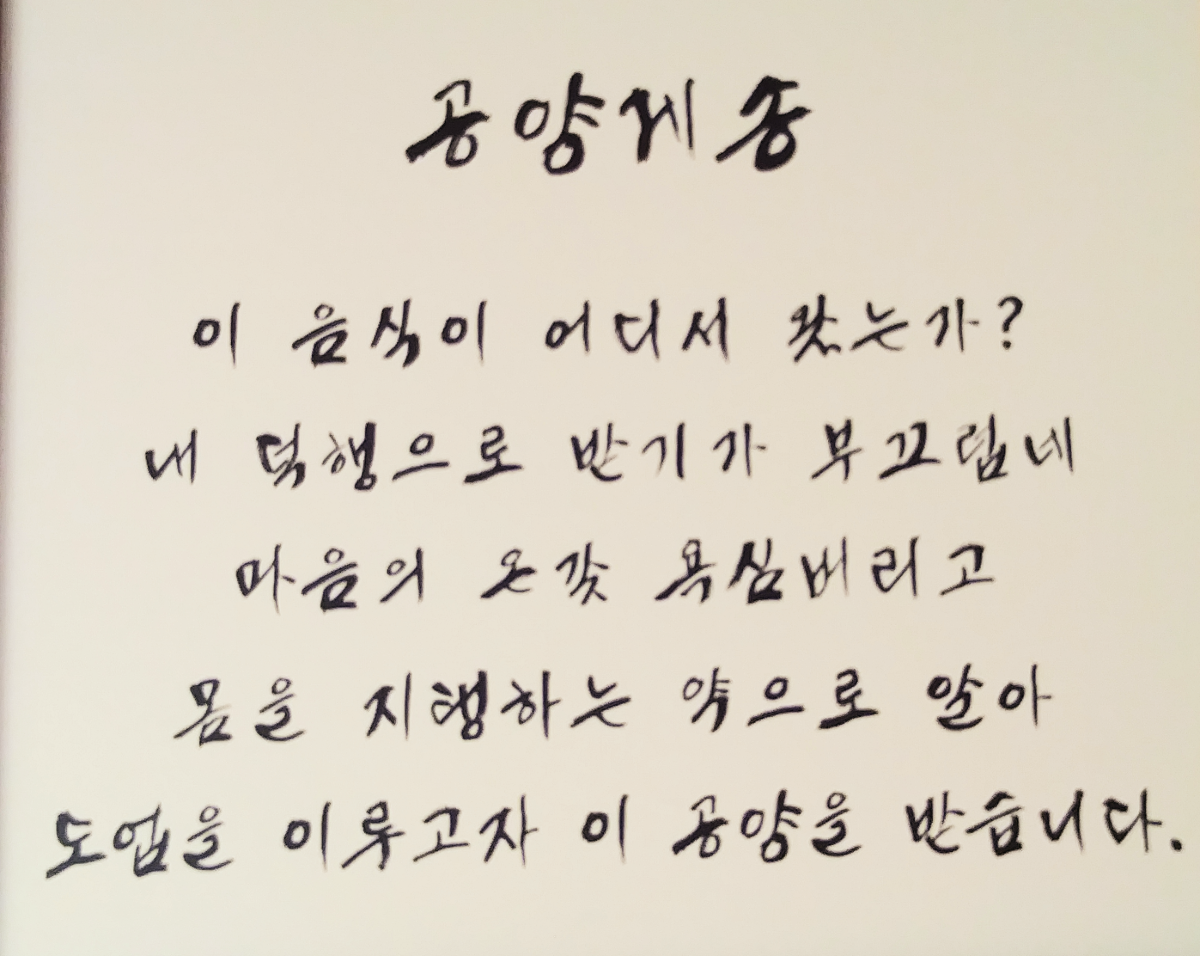 공양게송
이 음식이 어디서 왔는가?
내 덕행으로 받기가 부끄럽네
마음의 온갖 욕심버리고
몸을 지행하는 약으로 알아
도업을 이루고자 이 공양을 받습니다.